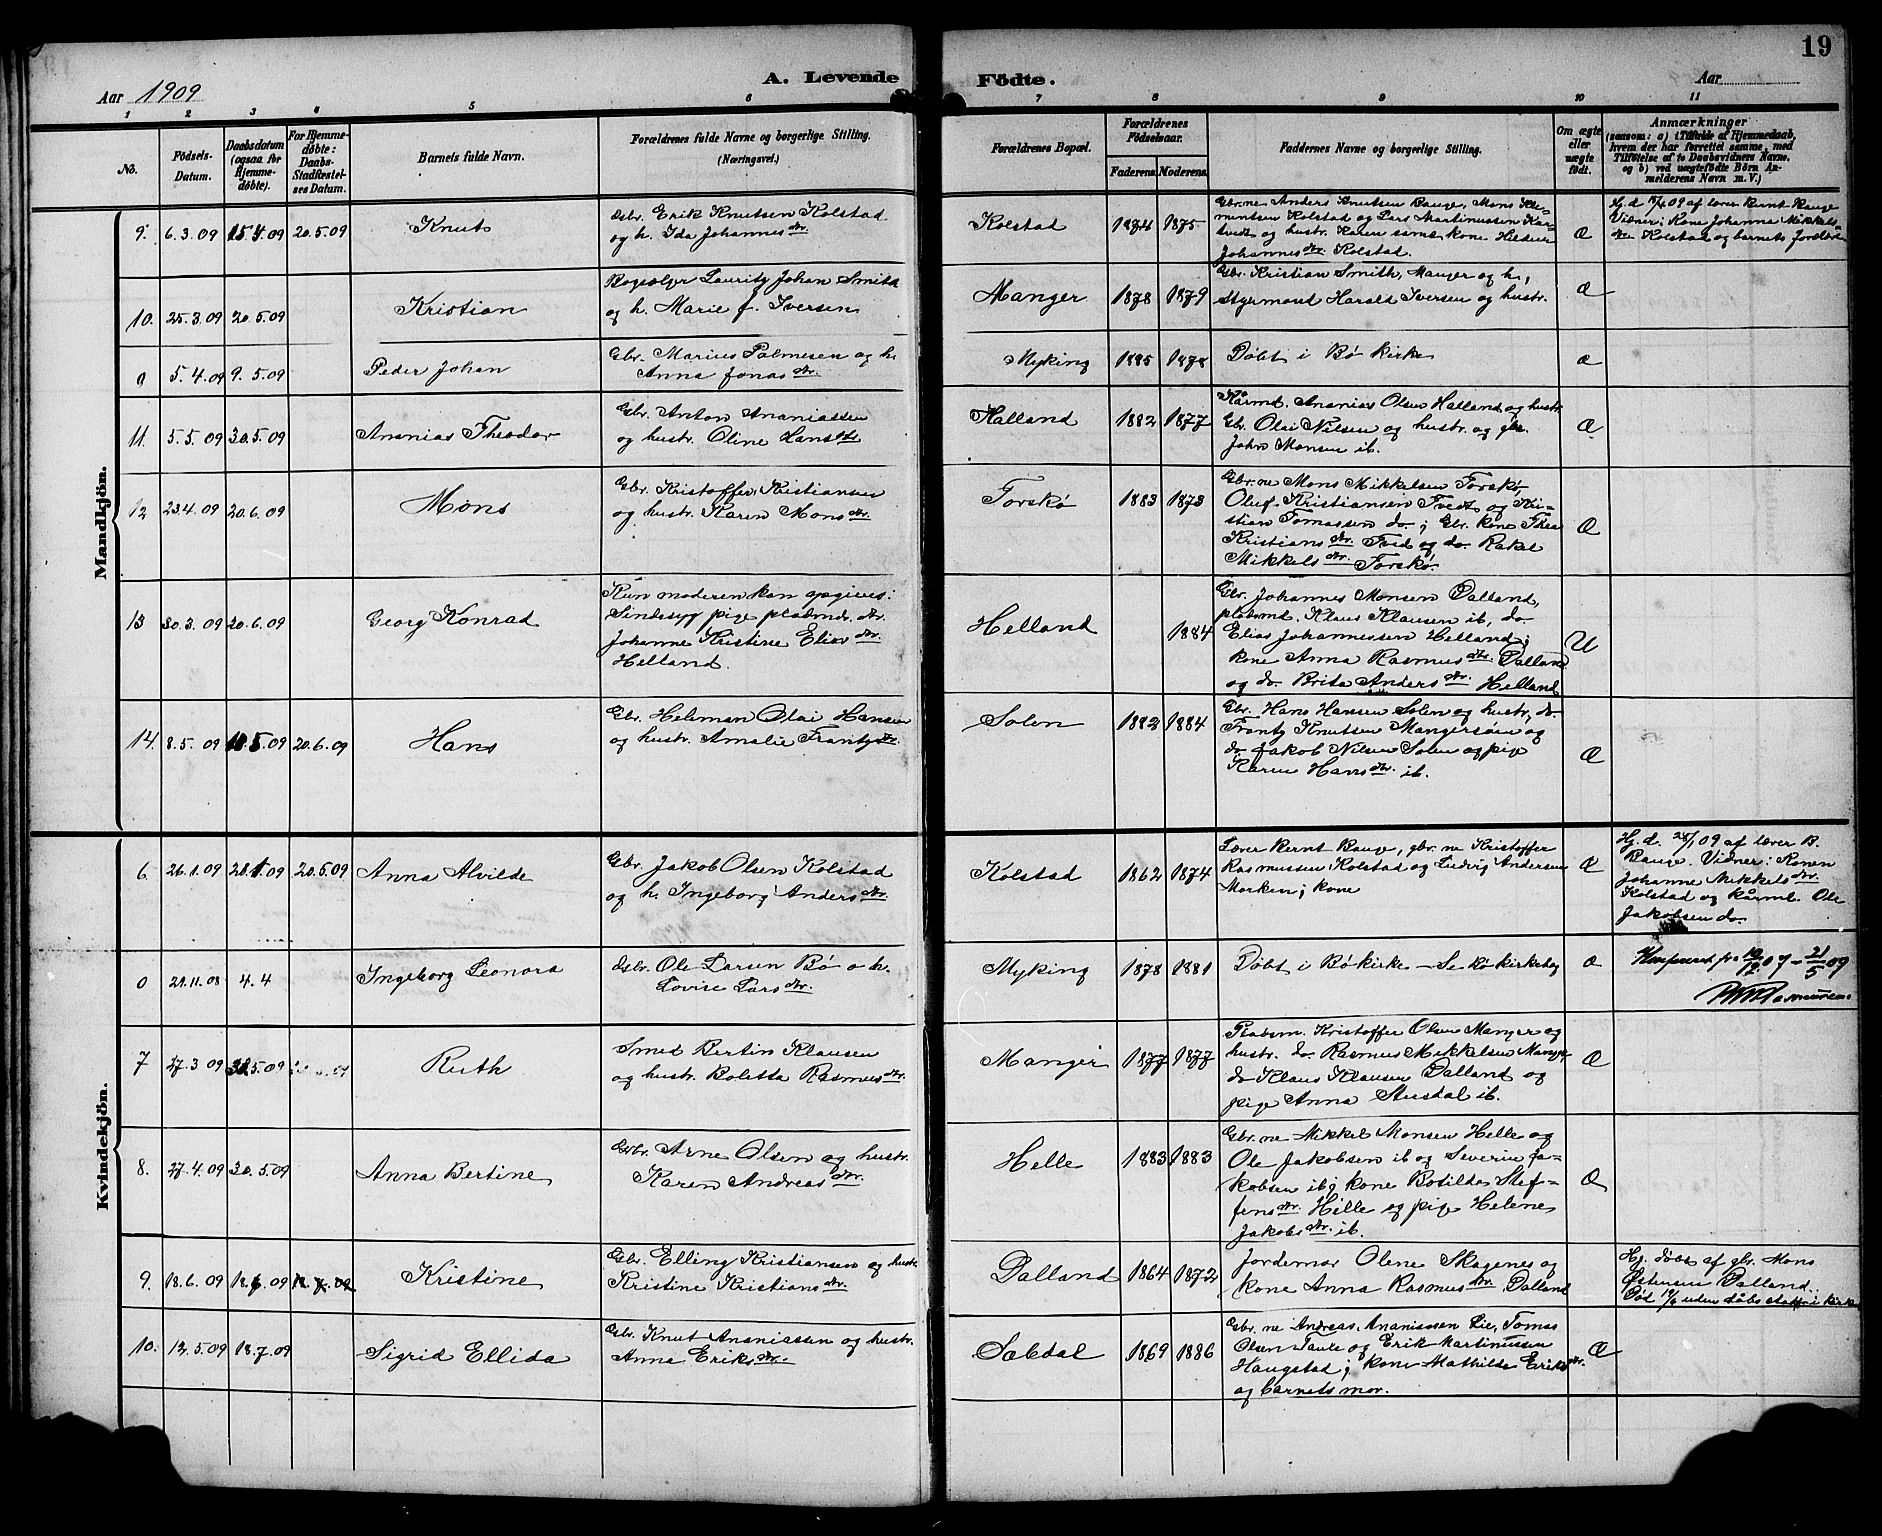 19
A. Levende Födte.
Aar 1909
Aar
1 2 3 4 5 6 7 8 9 10 11
No.
Födsels-Datum.
Daabsdatum (ogsaa for Hjemme-döbte).
For Hjemme-döbte: Daabs-Stadfæstel-ses Datum.
Barnets fulde Navn.
Forældrenes fulde Navne og borgerlige Stilling. (Næringsvei.)
Forældrenes Bopæl.
Forældrenes Födselsaar.
Faderens. Moderens.
Faddernes Navne og borgerlige Stilling.
Om ægte eller uægte födt.
Anmærkninger
(saasom: a) i Tilfælde af Hjemmedaab,
hvem der har forrettet samme, med
Tilföielse af to Daabsvidners Navne,
og b) ved uægtefödte Börn An-
melderens Navn m. V.)
Mandkjön.
9. 6.3.09 15.4.09 20.5.09 Knut
Gbr. Erik Knutsen Kolstad
og h. Ida Johannesdtr.
Kolstad 1874 1875
Gbr.ne Anders Knutsen Bauge, Mons Kle-
mentsen Kolstad og Lars Martinussen
og hustr. Karen samt kone
Johannesdtr. Kolstad.
Æ
Hj.d 15/4 09 af lærer Bernt Bauge
Vidner: Kone Johanna Mikkels-
dtr. Kolstad og barnets
10. 25.3.09 20.5.09 Kristian
Lauritz Johan Smith
og h. Marie f. Iversen
Manger 1878 1879
Gbr. Kristian Smith, Manger og h.,
Styrmand Harald Iversen og hustr.
Æ
0 5.4.09 9.5.09 Peder Johan
Gbr. Marius Palmesen og h.
Anna Jonasdtr.
Myking 1885 1878
Döbt i Bø kirke
æ
11. 5.5.09 30.5.09 Ananias Theodor
Gbr. Anton Ananiassen
og hustr. Oline Hansdtr.
Halland 1882 1877
Kårmd. Ananias Olsen Halland og hustr.
Gbr. Olai Nilsen og hustr. og gbr.
John Monsen ib.
Æ
12 23.4.09 20.6.09 Mons
Gbr. Kristoffer Kristiansen
og hustr. Karen Monsdtr.
Toskø 1883 1873
Gbr.ne Mons Mikkelsen Toskø,
Oluf Kristiansen Tvedt og Kri-
stian Tomassen do.; Gbr. kone Thea
Kristiansdtr. Tved og do. Rakel
Mikkelsdtr. Toskø.
Æ
13 30.3.09 20.6.09 Georg Konrad
Kun moderen kan opgives:
Sindssyg pige plabmd. dtr.
Johanne Kristine Eliasdtr.
Helland.
Helland 1884
Gbr. Johannes Monsen Dalland,
plabmd. Klaus Klausen ib, do
Elias Johannessen Helland;
kone Anna Rasmusdtr. Dalland
og do. Brita Andersdtr. Helland
U
14. 8.5.09 18.5.09 20.6.09 Hans
Gbr. Helman Olai Hansen
og hustr. Amalie Frantzdtr.
Solen 1882 1884
Gbr. Hans Hansen Solen og hustr, do.
Frantz Knutsen Mangersøien og
do. Jakob Nilsen Solen og pige
Karen Hansdtr. ib.
Æ
Kvindekjön.
6. 26.1.09 28.1.09 20.5.09 Anna Alvilde
Gbr. Jakob Olsen Kolstad
og h. Ingeborg Andersdtr.
Kolstad 1862 1874
Lærer Bernt Bauge, gbr.ne Kristoffer
Rasmussen Kolstad og Ludvig Andersen
Morken; kone
Æ
Hj.d. 28/1 09 af lærer B.
Bauge. Vidner: Konen
Johanne Mikkelsdtr.
Kolstad og kårmd. Ole
Jakobsen do.
0 29.11.08 4.4 Ingeborg Leonora
Gbr. Ole Larsen Bø o h.
Lovise Larsdtr.
Myking 1878 1881
Döbt i Bø kirke – Se Bø kirkebog
æ
Konfereret fra 10/12 07 – 21/5 09
7 27.3.09 30.5.09 Ruth
Smed Bertin Klausen
og hustr. Boletta Rasmusdtr.
Manger 1877 1877
Plabsm. Kristoffer Olsen Manger og
hustr. do. Rasmus Mikkelsen Manger,
do Klaus Klausen Dalland og
pige Anna Austdal ib.
Æ
8. 27.4.09 30.5.09 Anna Bertine
Gbr. Arne Olsen og hustr.
Karen Andreasdtr.
Helle 1883 1883
Gbr.ne Mikkel Monsen Helle og
Ole Jakobsen ib og Severin Ja-
kobsen ib; kone Botilda Stef-
fensdtr. Helle og pige Helene
Jakobsdtr. ib.
Æ
9. 18.6.09 18.6.09 18.7.09 Kristine
Gbr. Elling Kristiansen og hustr.
Kristine Kristiansdtr.
Dalland 1864 1872
Jordemor Olene Skagenes og
kone Anna Rasmusdtr. Dalland
Hj. döbt af gbr. Mons
Østensen Dalland.
Død 19/6 uden dåbs stadf. i kirken
10. 12.5.09 18.7.09 Sigrid Ellida
Gbr. Knut Ananiassen og hustr.
Anna Eriksdtr.
Sæbdal 1869 1886
Gbr.ne Andreas Ananiassen Lie, Tomas
Olsen Taule og Erik Martinussen
Haugstad; kone Mathilde Eriksdtr.
og barnets mor.
Æ